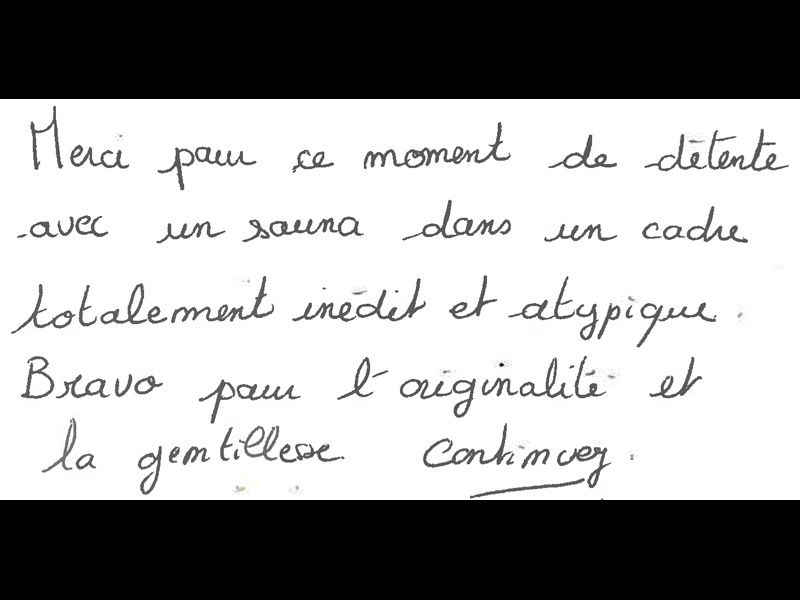 Merci pour ce moment de détente
avec un sauna dans un cadre
totalement inédit et atypique.
Bravo pour l'originalité et
la gentillesse. Continuez.